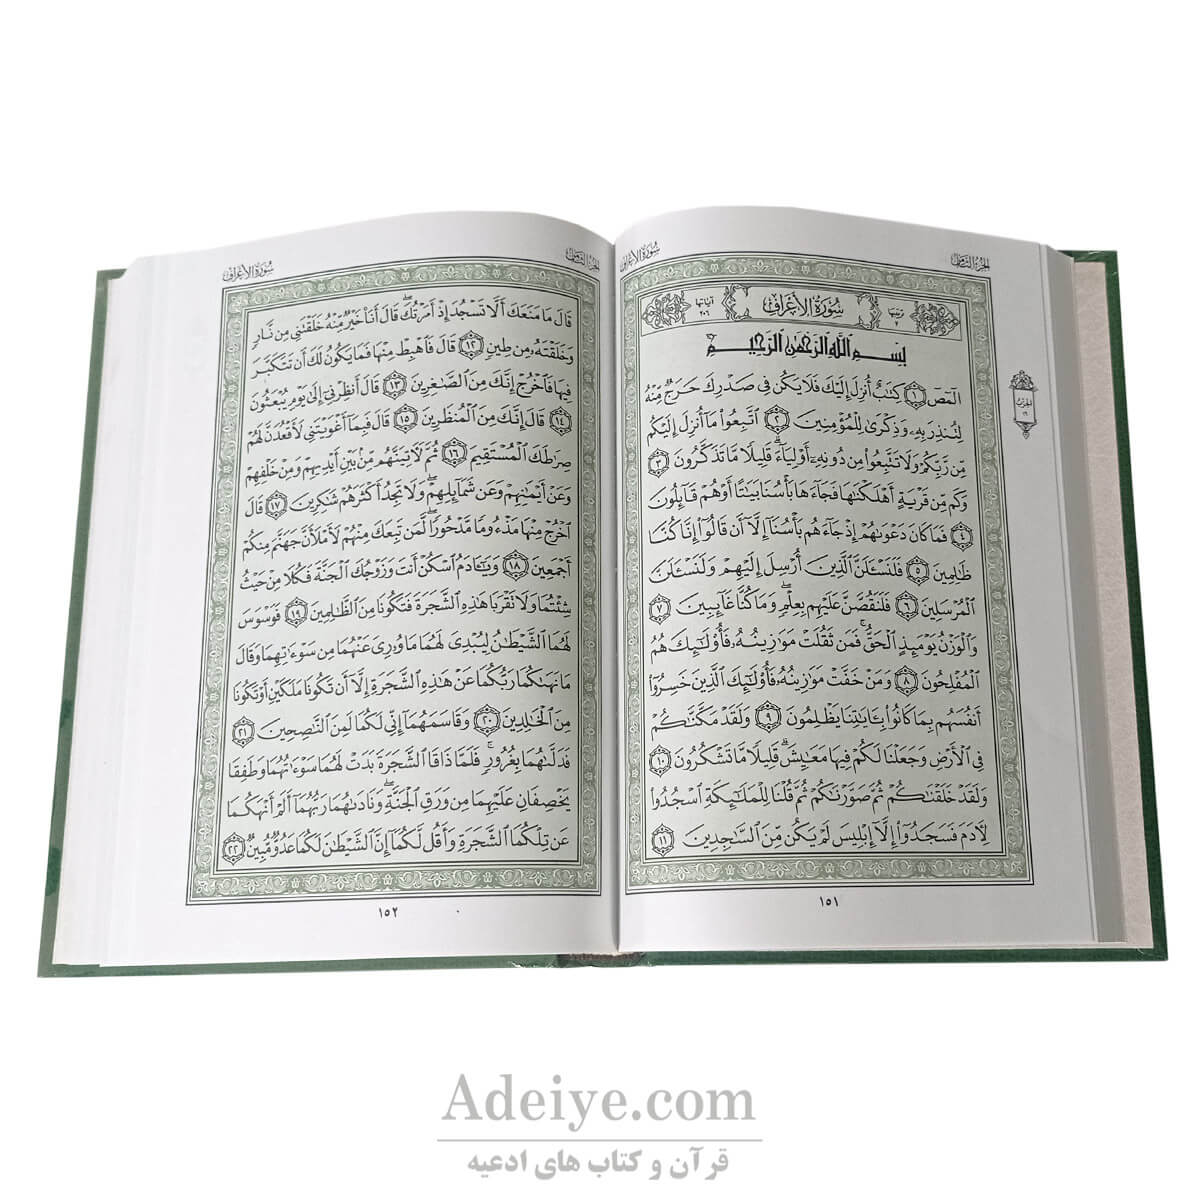 الجزء الثامن
سورة الأعراف
ترتيبها ٧
سُورَةُ الأَعْرَافِ
آياتها ٢٠٦
بِسْمِ ٱللَّهِ ٱلرَّحْمَٰنِ ٱلرَّحِيمِ
الٓمٓصٓ ١ كِتَٰبٌ أُنزِلَ إِلَيْكَ فَلَا يَكُن فِى صَدْرِكَ حَرَجٌ مِّنْهُ
لِتُنذِرَ بِهِۦ وَذِكْرَىٰ لِلْمُؤْمِنِينَ ٢ ٱتَّبِعُوا۟ مَآ أُنزِلَ إِلَيْكُم
مِّن رَّبِّكُمْ وَلَا تَتَّبِعُوا۟ مِن دُونِهِۦٓ أَوْلِيَآءَ ۗ قَلِيلًا مَّا تَذَكَّرُونَ ٣
وَكَم مِّن قَرْيَةٍ أَهْلَكْنَٰهَا فَجَآءَهَا بَأْسُنَا بَيَٰتًا أَوْ هُمْ قَآئِلُونَ
٤ فَمَا كَانَ دَعْوَىٰهُمْ إِذْ جَآءَهُم بَأْسُنَآ إِلَّآ أَن قَالُوٓا۟ إِنَّا كُنَّا
ظَٰلِمِينَ ٥ فَلَنَسْـَٔلَنَّ ٱلَّذِينَ أُرْسِلَ إِلَيْهِمْ وَلَنَسْـَٔلَنَّ
ٱلْمُرْسَلِينَ ٦ فَلَنَقُصَّنَّ عَلَيْهِم بِعِلْمٍ ۖ وَمَا كُنَّا غَآئِبِينَ ٧
وَٱلْوَزْنُ يَوْمَئِذٍ ٱلْحَقُّ ۚ فَمَن ثَقُلَتْ مَوَٰزِينُهُۥ فَأُو۟لَٰٓئِكَ هُمُ
ٱلْمُفْلِحُونَ ٨ وَمَنْ خَفَّتْ مَوَٰزِينُهُۥ فَأُو۟لَٰٓئِكَ ٱلَّذِينَ خَسِرُوٓا۟
أَنفُسَهُم بِمَا كَانُوا۟ بِـَٔايَٰتِنَا يَظْلِمُونَ ٩ وَلَقَدْ مَكَّنَّٰكُمْ
فِى ٱلْأَرْضِ وَجَعَلْنَا لَكُمْ فِيهَا مَعَٰيِشَ ۗ قَلِيلًا مَّا تَشْكُرُونَ ١٠
وَلَقَدْ خَلَقْنَٰكُمْ ثُمَّ صَوَّرْنَٰكُمْ ثُمَّ قُلْنَا لِلْمَلَٰٓئِكَةِ ٱسْجُدُوا۟
لِـَٔادَمَ فَسَجَدُوٓا۟ إِلَّآ إِبْلِيسَ لَمْ يَكُن مِّنَ ٱلسَّٰجِدِينَ ١١
١٥١
الجزء الثامن
سورة الأعراف
قَالَ مَا مَنَعَكَ أَلَّا تَسْجُدَ إِذْ أَمَرْتُكَ ۖ قَالَ أَنَا۠ خَيْرٌ مِّنْهُ خَلَقْتَنِى مِن نَّارٍ
وَخَلَقْتَهُۥ مِن طِينٍ ١٢ قَالَ فَٱهْبِطْ مِنْهَا فَمَا يَكُونُ لَكَ أَن تَتَكَبَّرَ
فِيهَا فَٱخْرُجْ إِنَّكَ مِنَ ٱلصَّٰغِرِينَ ١٣ قَالَ أَنظِرْنِىٓ إِلَىٰ يَوْمِ يُبْعَثُونَ
١٤ قَالَ إِنَّكَ مِنَ ٱلْمُنظَرِينَ ١٥ قَالَ فَبِمَآ أَغْوَيْتَنِى لَأَقْعُدَنَّ لَهُمْ
صِرَٰطَكَ ٱلْمُسْتَقِيمَ ١٦ ثُمَّ لَـَٔاتِيَنَّهُم مِّنۢ بَيْنِ أَيْدِيهِمْ وَمِنْ خَلْفِهِمْ
وَعَنْ أَيْمَٰنِهِمْ وَعَن شَمَآئِلِهِمْ ۖ وَلَا تَجِدُ أَكْثَرَهُمْ شَٰكِرِينَ ١٧ قَالَ
ٱخْرُجْ مِنْهَا مَذْءُومًا مَّدْحُورًا ۖ لَّمَن تَبِعَكَ مِنْهُمْ لَأَمْلَأَنَّ جَهَنَّمَ مِنكُمْ
أَجْمَعِينَ ١٨ وَيَٰٓـَٔادَمُ ٱسْكُنْ أَنتَ وَزَوْجُكَ ٱلْجَنَّةَ فَكُلَا مِنْ حَيْثُ
شِئْتُمَا وَلَا تَقْرَبَا هَٰذِهِ ٱلشَّجَرَةَ فَتَكُونَا مِنَ ٱلظَّٰلِمِينَ ١٩ فَوَسْوَسَ
لَهُمَا ٱلشَّيْطَٰنُ لِيُبْدِىَ لَهُمَا مَا وُۥرِىَ عَنْهُمَا مِن سَوْءَٰتِهِمَا وَقَالَ
مَا نَهَىٰكُمَا رَبُّكُمَا عَنْ هَٰذِهِ ٱلشَّجَرَةِ إِلَّآ أَن تَكُونَا مَلَكَيْنِ أَوْ تَكُونَا
مِنَ ٱلْخَٰلِدِينَ ٢٠ وَقَاسَمَهُمَآ إِنِّى لَكُمَا لَمِنَ ٱلنَّٰصِحِينَ ٢١
فَدَلَّىٰهُمَا بِغُرُورٍ ۚ فَلَمَّا ذَاقَا ٱلشَّجَرَةَ بَدَتْ لَهُمَا سَوْءَٰتُهُمَا وَطَفِقَا
يَخْصِفَانِ عَلَيْهِمَا مِن وَرَقِ ٱلْجَنَّةِ ۖ وَنَادَىٰهُمَا رَبُّهُمَآ أَلَمْ أَنْهَكُمَا
عَن تِلْكُمَا ٱلشَّجَرَةِ وَأَقُل لَّكُمَآ إِنَّ ٱلشَّيْطَٰنَ لَكُمَا عَدُوٌّ مُّبِينٌ ٢٢
١٥٢
Adeiye.com
قرآن و کتاب های ادعیه